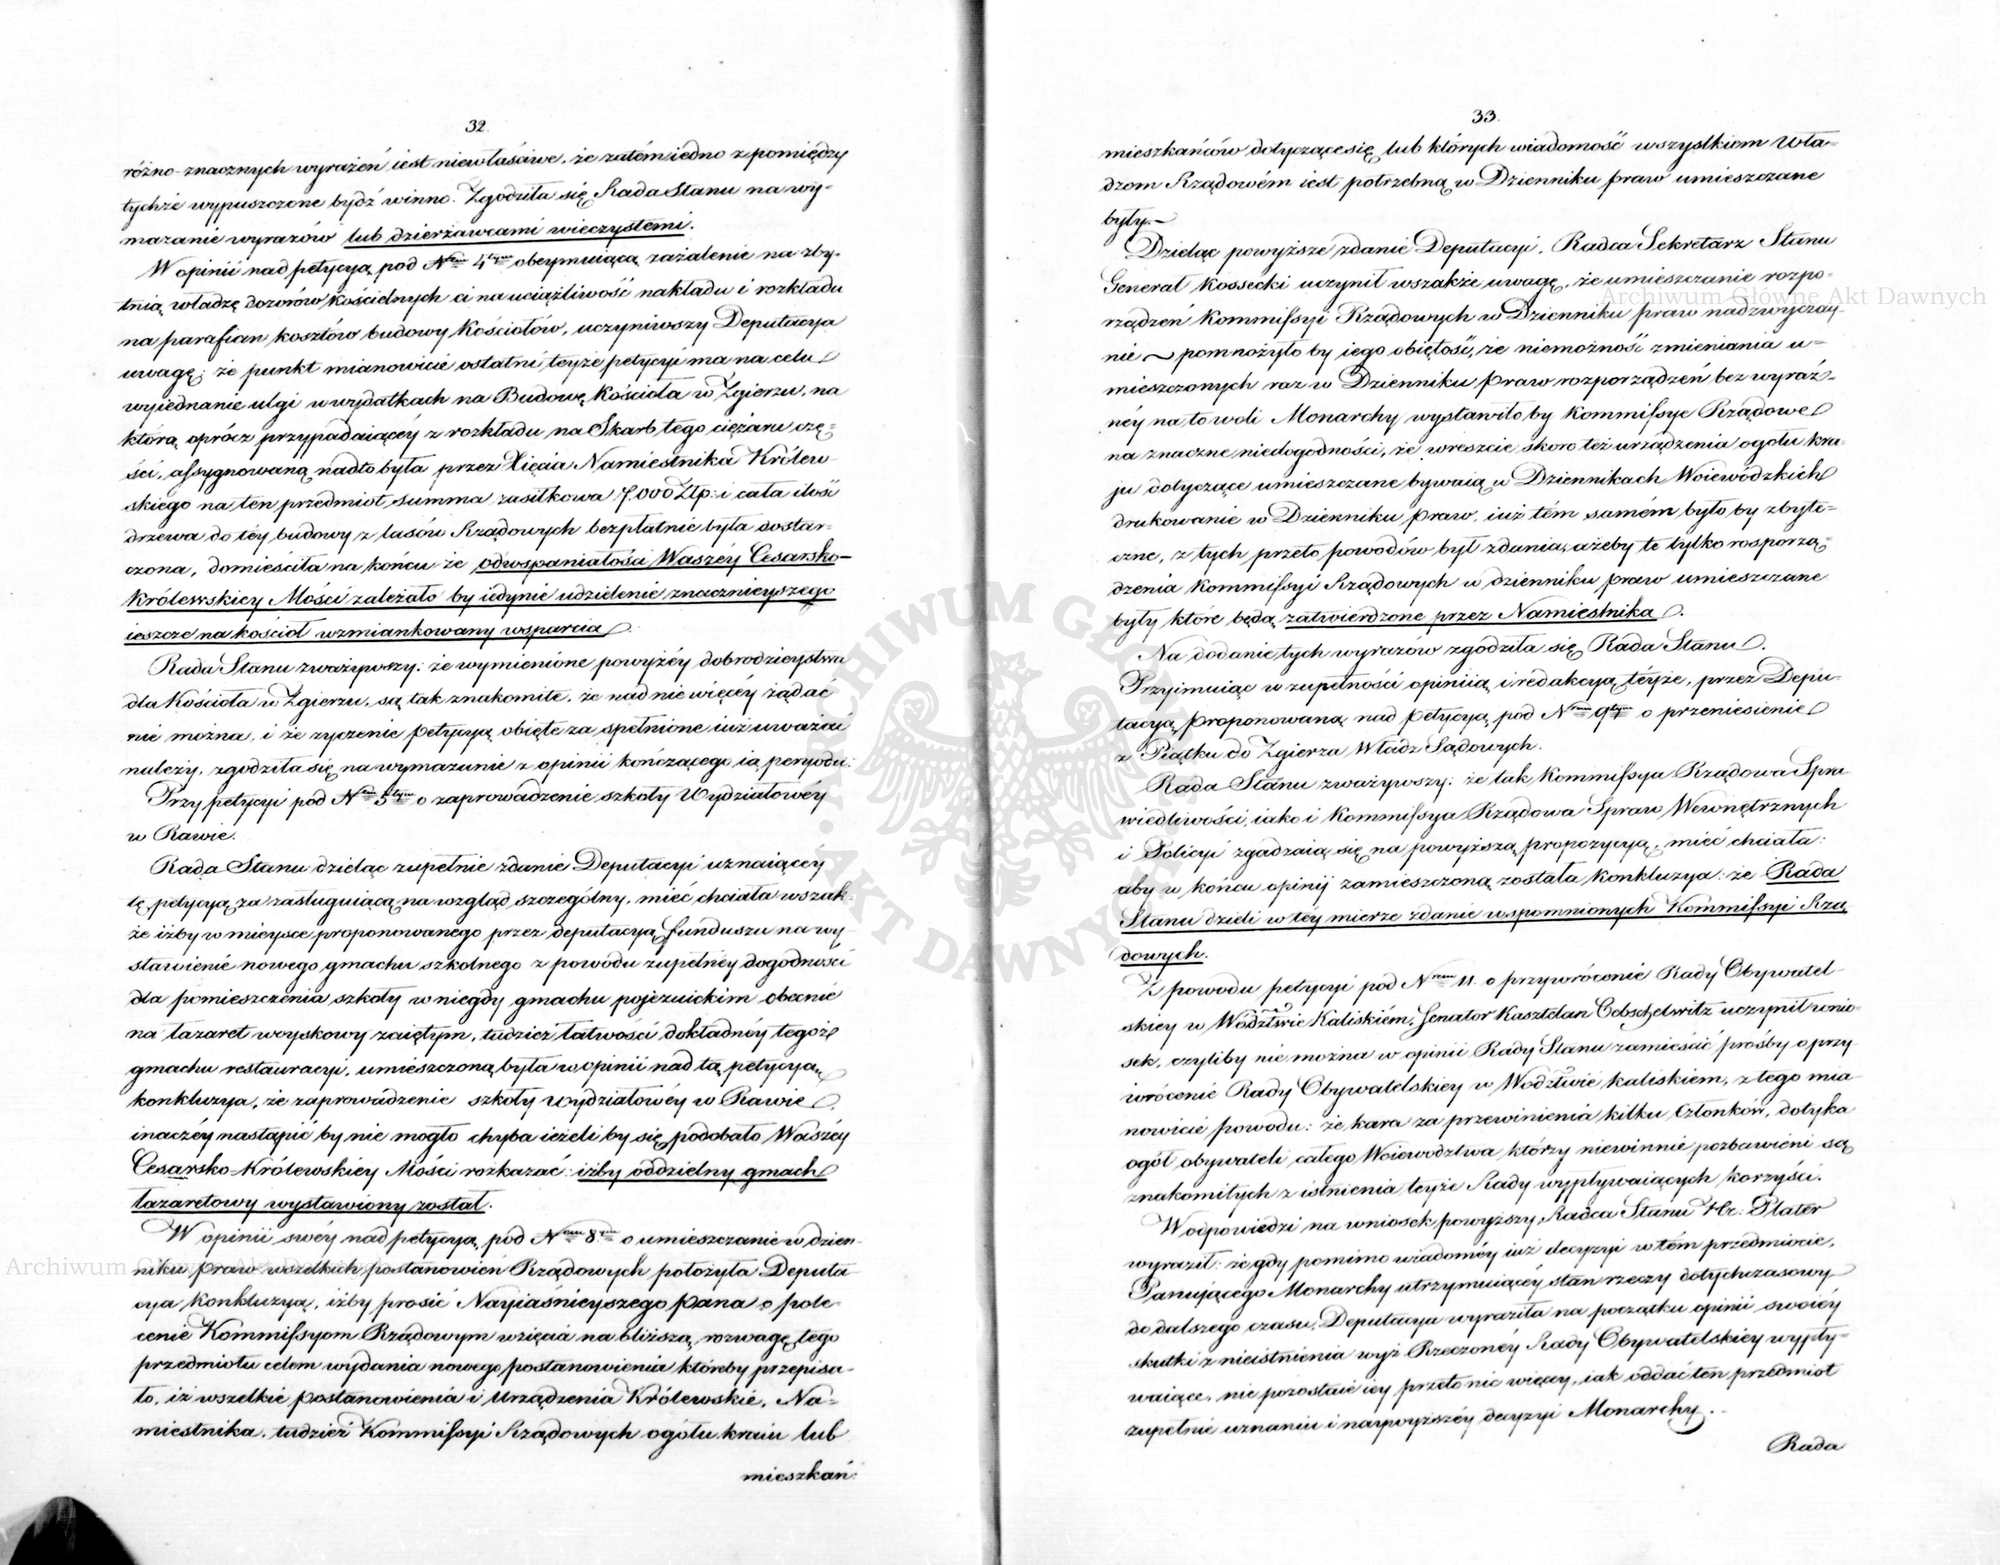 32.
różno-znacznych wyrażeń iest niewłaściwe, że zatém iedno z pomiędzy
tychże wypuszczone bydź winno. Zgodziła się Rada Stanu na wy-
mazanie wyrazów lub dzierżawcami wieczystemi.
W opinii nad petycyą pod Nrem 4tym obeymuiącą zażalenie na zby-
tnią władzę dozorów kościelnych ci na uciążliwość nakładu i rozkładu
na parafian kosztów budowy Kościołów, uczyniwszy Deputacya
uwagę; że punkt mianowicie ostatni teyże petycyi ma na celu
wyiednanie ulgi w wydatkach na Budowę Kościoła w Zgierzu, na
którą oprócz przypadaiącéy z rozkładu na Skarb tego ciężaru czę-
ści, assygnowaną nadto była przez Xięcia Namiestnika Królew-
skiego na ten przedmiot summa zasiłkowa 7.000 Złp: i cała ilość
drzewa do téy budowy z lasów Rządowych bezpłatnie była dostar-
czona, domieściła na końcu że od wspaniałości Waszéy Cesarsko-
Królewskiey Mości zależało by iedynie udzielenie znacznieyszego
ieszcze na kościoł wzmiankowany wsparcia.
Rada Stanu zważywszy: że wymienione powyżéy dobrodzieystwa
dla Kościoła w Zgierzu, są tak znakomite, że nad nie więcéy żądać
nie można, i że życzenie petycyą obięte za spełnione iuż uważać
należy, zgodziła się na wymazanie z opinii kończącego ią peryodu.
Przy petycyi pod Nrem 5tym o zaprowadzenie szkoły Wydziałowéy
w Rawie.
Rada Stanu dzieląc zupełnie zdanie Deputacyi uznaiącéy
tę petycyą za zasługuiącą na wzgląd szczególny, mieć chciała wszak-
że iżby w mieysce proponowanego przez deputacyą funduszu na wy-
stawienie nowego gmachu szkolnego z powodu zupełnéy dogodności
dla pomieszczenia szkoły w niegdy gmachu pojezuickim obecnie
na lazaret woyskowy zaiętym, tudzież łatwości dokładnéy tegoż
gmachu restauracyi, umieszczoną była w opinii nad tą petycyą
konkluzya, że zaprowadzenie szkoły wydziałowéy w Rawie
inaczéy nastąpić by nie mogło chyba ieżeli by się podobało Waszéy
Cesarsko-Królewskiéy Mości rozkazać: iżby oddzielny gmach
lazaretowy wystawiony został.
W opinii swéy nad petycyą pod Nrem 8ym o umieszczanie w dzien-
niku praw wszelkich postanowień Rządowych położyła Deputa
cya konkluzyą, iżby prosić Nayiaśnieyszego Pana o pole-
cenie Kommissyom Rządowym wzięcia na bliższą rozwagę tego
przedmiotu celem wydania nowego postanowienia któreby przepisa-
ło, iż wszelkie postanowienia i Urządzenia Królewskie, Na-
miestnika, tudzież Kommissyi Rządowych ogółu kraiu lub
mieszkań:
33.
mieszkańców dotyczące się lub których wiadomość wszystkiem Wła-
dzom Rządowém iest potrzebną w Dzienniku praw umieszczane
były.
Dzieląc powyższe zdanie Deputacyi, Radca Sekretarz Stanu
Generał Kossecki uczynił wszakże uwagę, że umieszczanie rozpo-
rządzeń Kommissyi Rządowych w Dzienniku praw nadzwyczay-
nie pomnożyło by iego obiętość, że niemożność zmieniania u-
mieszczonych raz w Dzienniku praw rozporządzeń bez wyraź-
néy na to woli Monarchy wystawiło by Kommissye Rządowe
na znaczne niedogodności, że wreszcie skoro też urządzenia ogółu kra-
ju dotyczące umieszczane bywaią w Dziennikach Woiewódzkich
drukowanie w Dzienniku praw, iuż tém samém było by zbyte-
czne, z tych przeto powodów był zdania, ażeby te tylko rosporzą-
dzenia Kommissyi Rządowych w dzienniku praw umieszczane
były które będą zatwierdzone przez Namiestnika.
Na dodanie tych wyrazów zgodziła się Rada Stanu.
Przyimuiąc w zupełności opiniią i redakcyą téyże, przez Depu-
tacyą proponowaną nad petycyą pod Nrem 9tym o przeniesienie
z Piątku do Zgierza Władz Sądowych.
Rada Stanu zważywszy: że tak Kommissya Rządowa Spra-
wiedliwości, iako i Kommissya Rządowa Spraw Wewnętrznych
i Policyi zgadzaią się na powyższą propozycyą, mieć chciała:
aby w końcu opinij zamieszczoną została konkluzya: że Rada
Stanu dzieli w téy mierze zdanie wspomnionych Kommissyi Rzą
dowych.
Z powodu petycyi pod Nrem 11. o przywrócenie Rady Obywatel-
skiey w Wodztwie Kaliskiém, Senator Kasztelan Gebschelwitz uczynił wnio-
sek, czyliby nie można w opinii Rady Stanu zamieścić prośby o przy
wrócenie Rady Obywatelskiey w Wodztwie Kaliskiem, z tego mia-
nowicie powodu: że kara za przewinienia kilku Członków, dotyka
ogół obywateli całego Woiewodztwa, którzy niewinnie pozbawieni są
znakomitych z istnienia teyże Rady wypływaiących korzyści.
W odpowiedzi na wniosek powyższy, Radca Stanu Hr: Plater
wyraził: że gdy pomimo wiadoméy iuż decyzyi w tém przedmiocie,
Panującego Monarchy utrzymuiącéy stan rzeczy dotychczasowy
do dalszego czasu, Deputacya wyraziła na początku opinii swoiéy
skutki z nieistnienia wyż Rzeczonéy Rady Obywatelskiey wypły-
waiące, nie pozostaie iey przeto nic więcey, iak oddać ten przedmiot
zupełnie uznaniu i naywyższéy decyzyi Monarchy.
Rada
Archiwum Główne Akt Dawnych